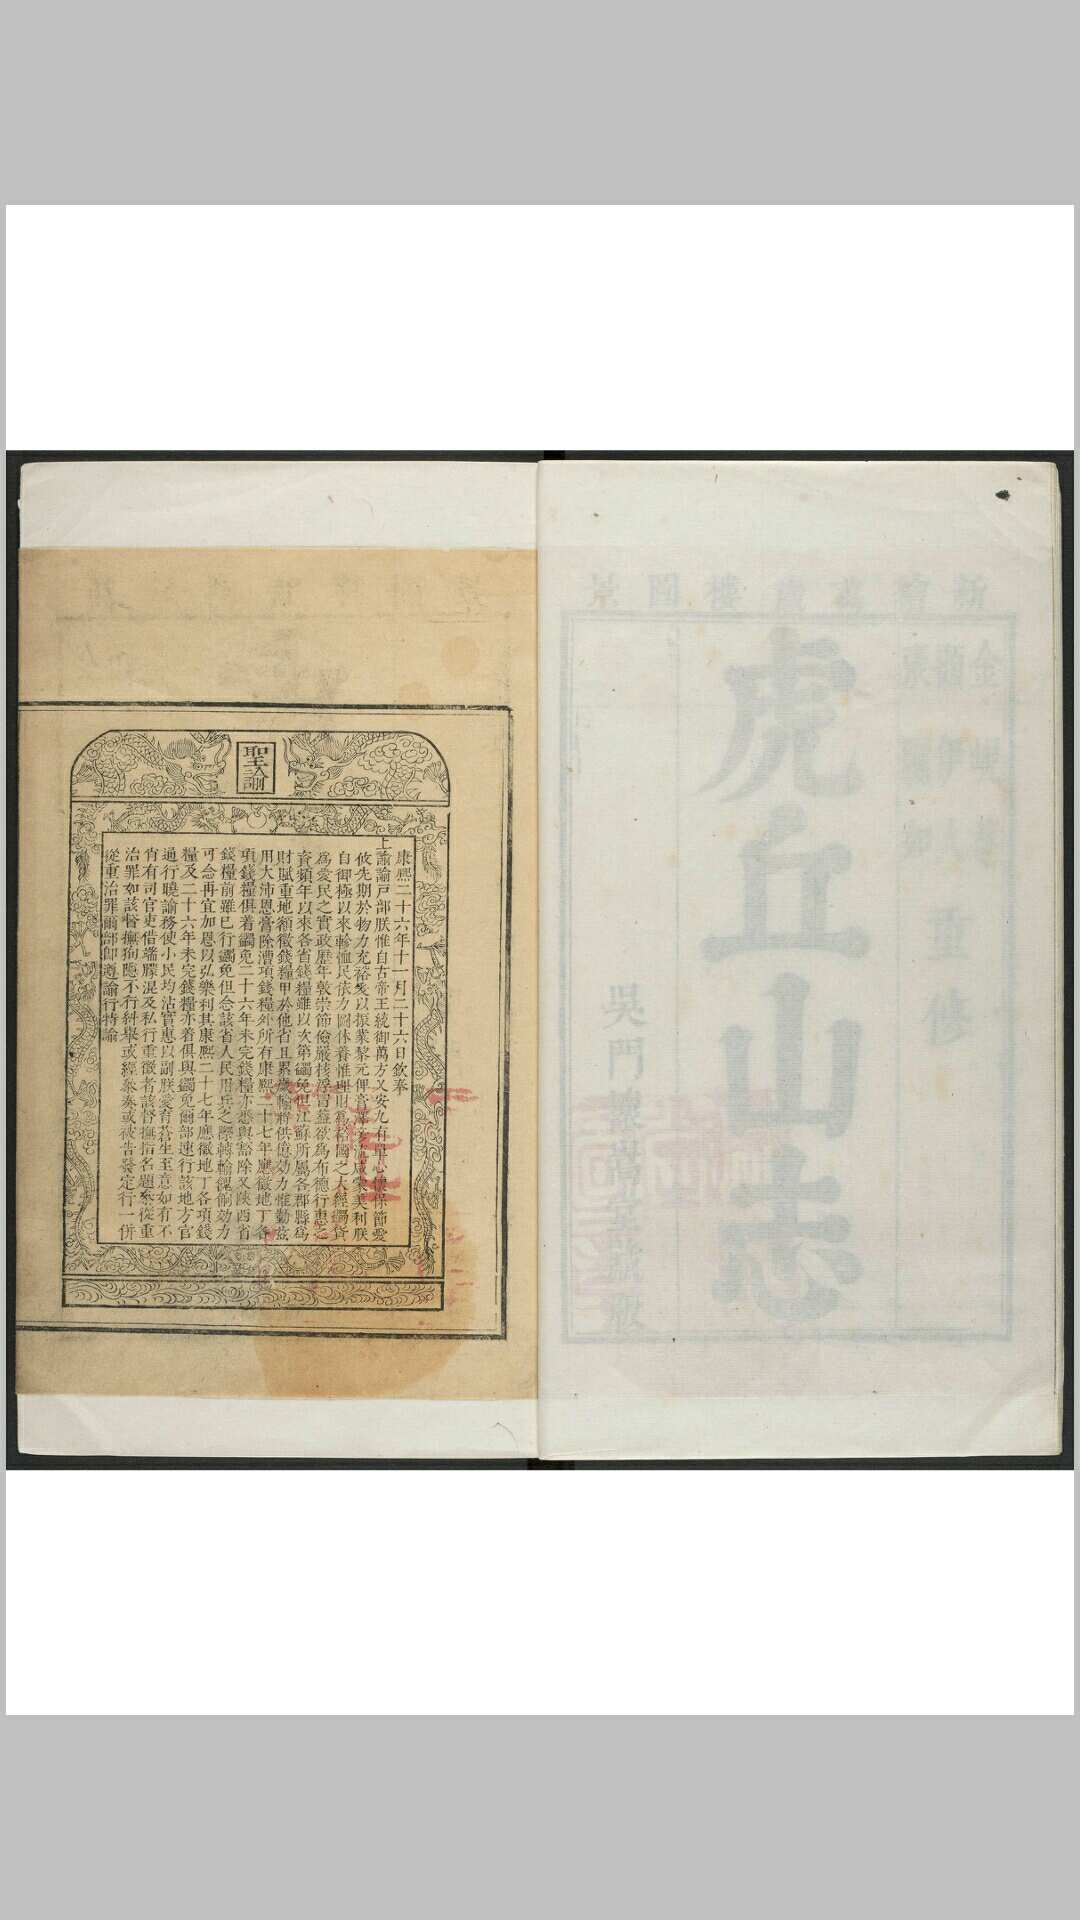 新繪 樓圖景
金
虎丘山志
吳門懷嵩堂藏板
聖諭
康熙二十六年十一月二十六日欽奉
上諭諭戶部朕惟自古帝王統御萬方乂安九有單心懷保節愛
攸先期於物力充裕爰以振業黎元俾膏澤 咸蒙美利朕
自御極以來軫恤民依力圖休養惟理財為裕國之大經蠲貸
為愛民之實政歷年敦崇節儉嚴核浮冒蓋欲為布德行惠之
資頻年以來各省錢糧雖以次第蠲免但江蘇所屬各郡縣為
財賦重地額徵錢糧甲於他省且累歲輸將供億効力惟勤茲
用大沛恩膏除漕項錢糧外所有康熙二十七年應徵地丁各
項錢糧俱着蠲免二十六年未完錢糧亦悉與豁除又陝西省
錢糧前雖已行蠲免但念該省人民用兵之際轉輸 餉効力
可念再宜加恩以弘樂利其康熙二十七年應徵地丁各項錢
糧及二十六年未完錢糧亦着俱與蠲免爾部速行該地方官
通行曉諭務使小民均沾實惠以副朕愛育蒼生至意如有不
肖有司官吏借端朦混及私行重徵者該督撫指名題參從重
治罪如該督撫徇隱不行糾舉或經參奏或被告發定行一併
從重治罪爾部即遵諭行特諭